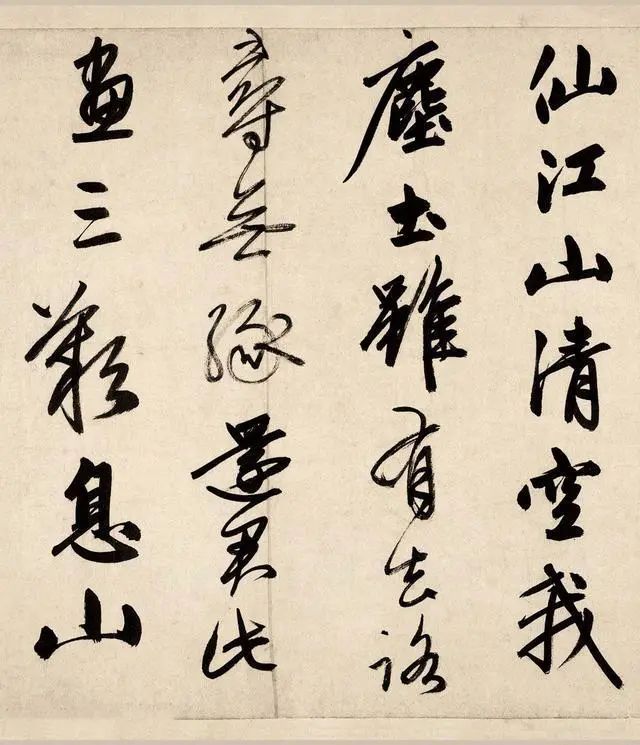 仙江山清空我
塵土雖有去路
尋無緣還君此
畫三歎息山